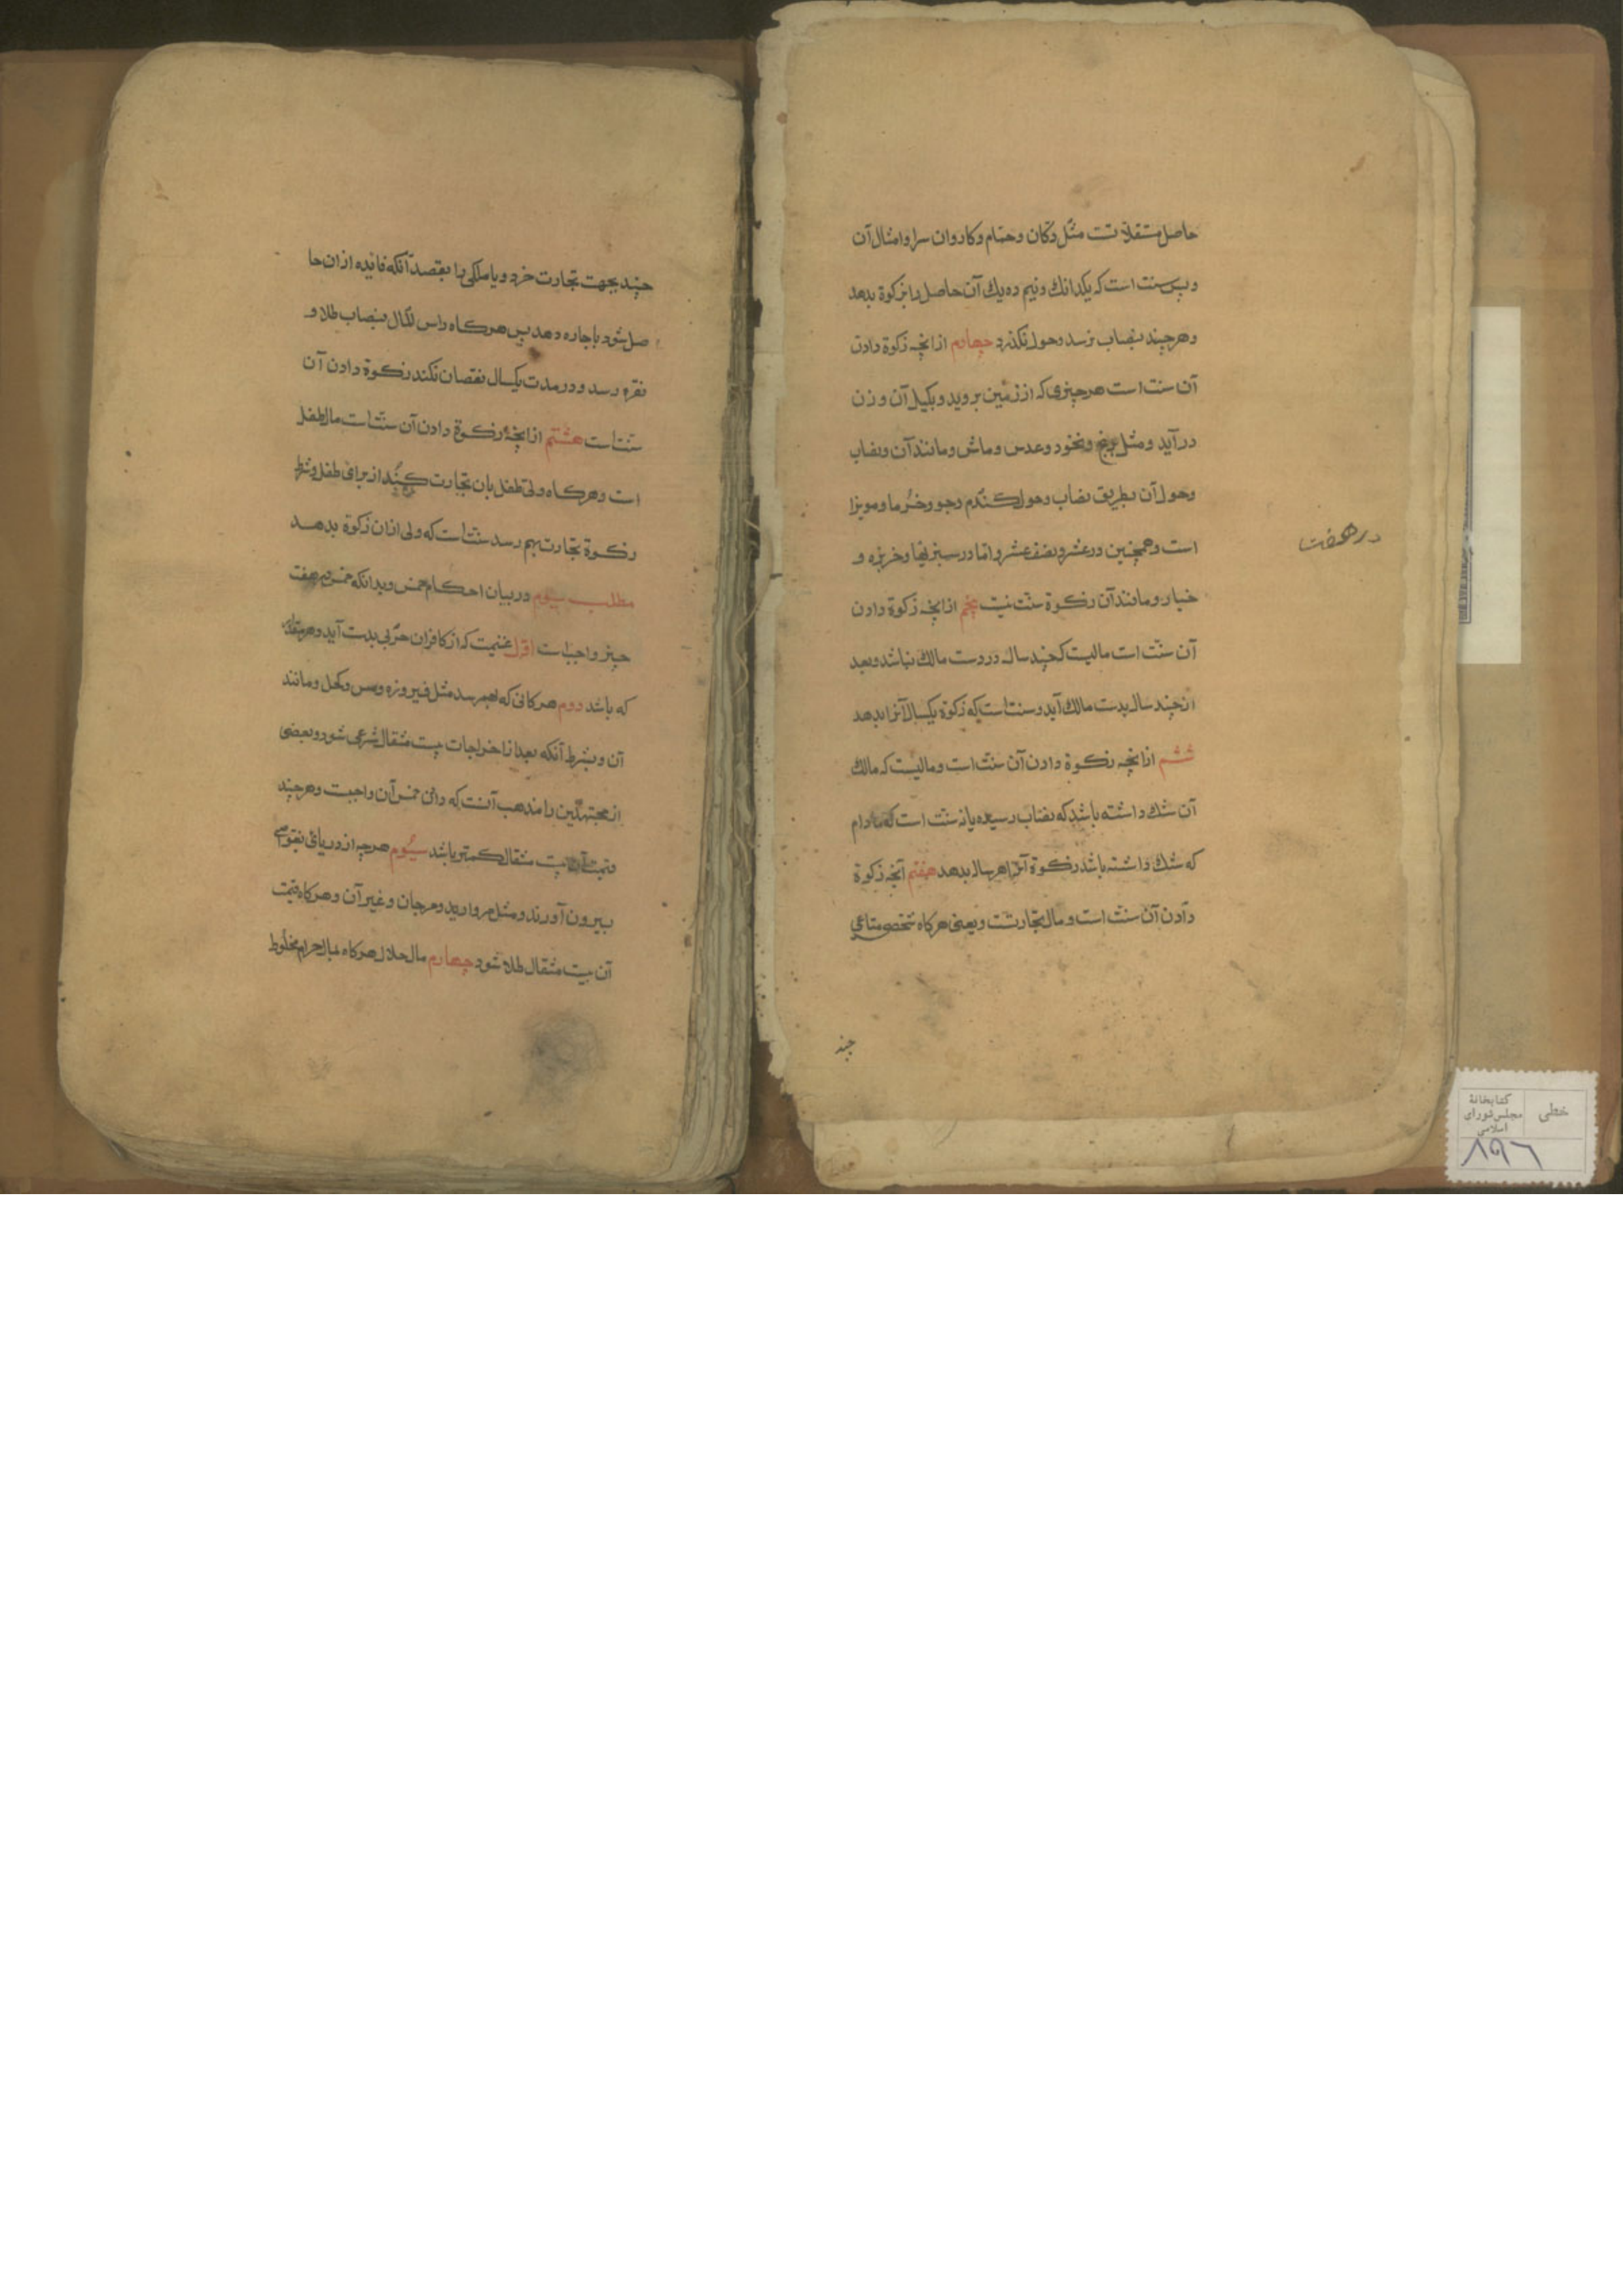 حاصل مستقلاتست مثل دکان وحمام وکاروان سرا وامثال آن
وپس سنت است که یکدانك ونیم ده یك آن حاصل را بزکوة بدهد
وهرچند بنصاب نرسد وحول نکذرد چهارم ازانچه زکوة دادن
آن سنت است هرچیزی که از زمین بروید وبکیل آن وزن
درآید ومثل برنج ونخود وعدس وماش ومانند آن ونصاب
وحول آن بطریق نصاب وحول کندم وجو وخرما ومویزا
است وهمچنین درعشر ونصف عشر واما درسبزیها وخربزه و
خیار ومانند آن زکوة سنت نیست پنجم ازانچه زکوة دادن
آن سنت است مالیست که چند سال دردست مالك نباشد وبعد
ازچند سال بدست مالك آید وسنت است که زکوة یکسال آنرا بدهد
ششم ازانچه زکوة دادن آن سنت است ومالیست که مالك
آن شك داشته باشد که بنصاب رسیده یا نه سنت است که مادام
که شك داشته باشد زکوة آنرا هرساله بدهد هفتم آنچه زکوة
دادن آن سنت است ومال تجارتست ویعنی هرکاه شخصی متاعی
چند
درهفت
چند بجهت تجارت خرد ویا ملکی را بقصد آنکه فایده ازان حا
صل شود باجاره دهد پس هرکاه راس المال بنصاب طلا و
نقره رسد ودر مدت یکسال نقصان نکند زکوة دادن آن
سنت است هشتم ازانچه زکوة دادن آن سنت است مال طفل
است وهرکاه ولی طفل بان تجارت کند از برای طفل وشرط
زکوة تجارت بهم رسد سنت است که ولی ازان زکوة بدهد
مطلب سیوم دربیان احکام خمس وبدانکه خمس در هفت
چیز واجب است اول غنیمت که از کافران حربی بدست آید وهرمقدار
که باشد دوم هرکانی که بهم رسد مثل فیروزه ومس وکحل ومانند
آن وبشرط آنکه بعد از اخراجات بیست مثقال شرعی شود وبعضی
از مجتهدین را مذهب آنست که دادن خمس آن واجبست وهرچند
قیمت آن بیست مثقال کمتر باشد سیوم هرچه از دریای بغواصی
بیرون آورند ومثل مروارید ومرجان وغیر آن وهرکاه قیمت
آن بیست مثقال طلا شود چهارم مال حلال هرکاه بمال حرام مخلوط
خطی
کتابخانهٔ
مجلس شورای
اسلامی
۸۹۶